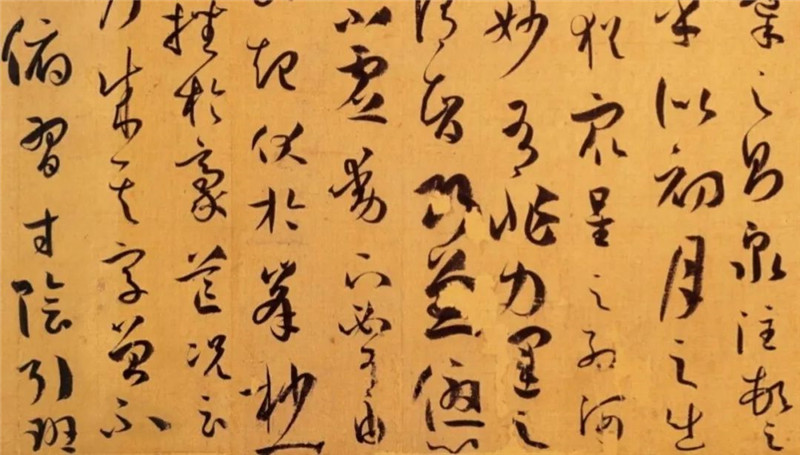 導之則泉注頓之
乎似初月之出
猶衆星之列河
妙有非力運之
謂智巧兼優心
不虛動下必有由
起伏於峯杪一
挫於豪芒況云
乃成其字曾不
俯習寸陰引班